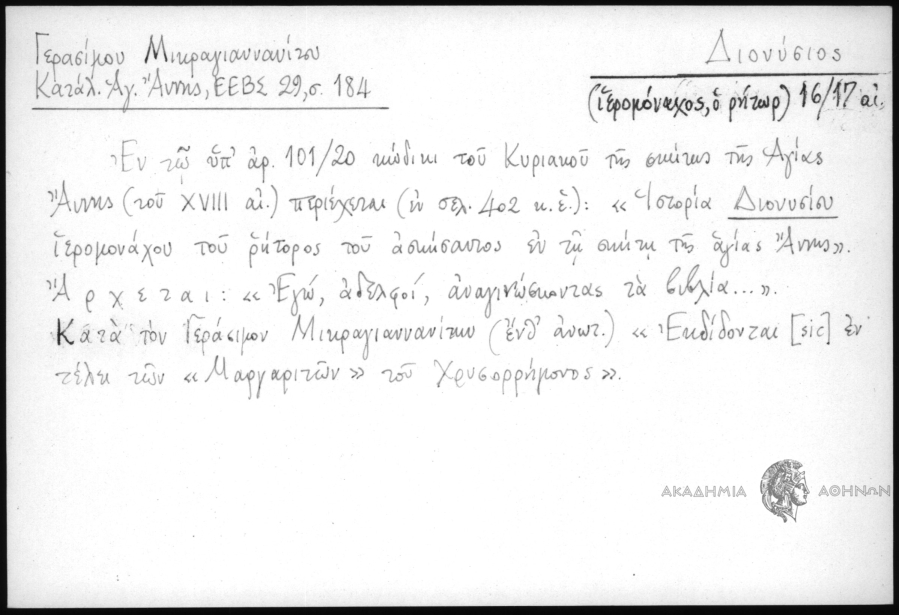 Γερασίμου Μικραγιαννανίτου
Κατάλ. Ἁγ. Ἄννης, ΕΕΒΣ 29, σ. 184
Διονύσιος
(ἱερομόναχος, ὁ ρήτωρ) 16/17 αἰ.
Ἐν τῷ ὑπ' ἀρ. 101/20 κώδικι τοῦ Κυριακοῦ τῆς σκήτης τῆς Ἁγίας
Ἄννης (τοῦ XVIII αἰ.) περιέχεται (ἐν σελ. 402 κ. ἑ.): « Ἱστορία Διονυσίου
ἱερομονάχου τοῦ ῥήτορος τοῦ ἀσκήσαντος ἐν τῇ σκήτῃ τῆς ἁγίας Ἄννης».
Ἄρχεται: « Ἐγώ, ἀδελφοί, ἀναγινώσκοντας τὰ βιβλία...».
Κατὰ τὸν Γεράσιμον Μικραγιαννανίτην (ἔνθ' ἀνωτ.) « Ἐκδίδονται [sic] ἐν
τέλει τῶν « Μαργαριτῶν » τοῦ Χρυσορρήμονος ».
ΑΚΑΔΗΜΙΑ ΑΘΗΝΩΝ